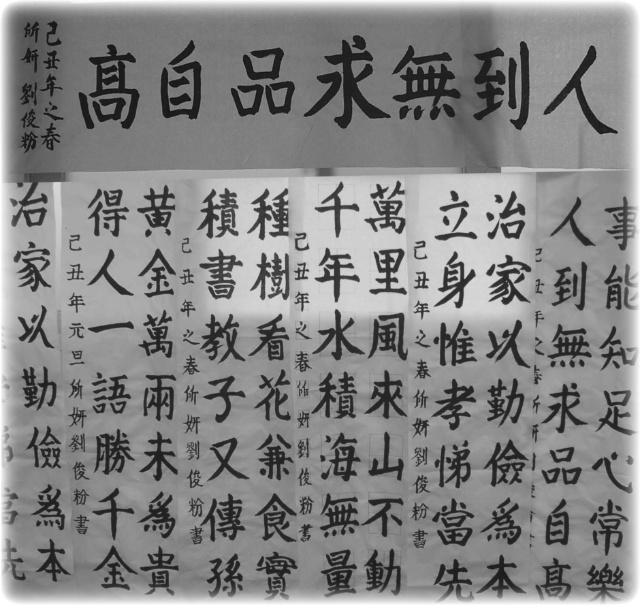 人到無求品自髙
己丑年之春
所妍劉俊粉
事能知足心常樂
人到無求品自髙
己丑年之春所妍劉俊
治家以勤儉爲本
立身惟孝悌當先
己丑年之春所妍劉俊粉書
萬里風來山不動
千年水積海無量
己丑年之春所妍劉俊粉書
種樹看花兼食實
積書教子又傳孫
己丑年之春所妍劉俊粉書
黃金萬兩未爲貴
得人一語勝千金
己丑年元旦所妍劉俊粉書
治家以勤儉爲本
當先